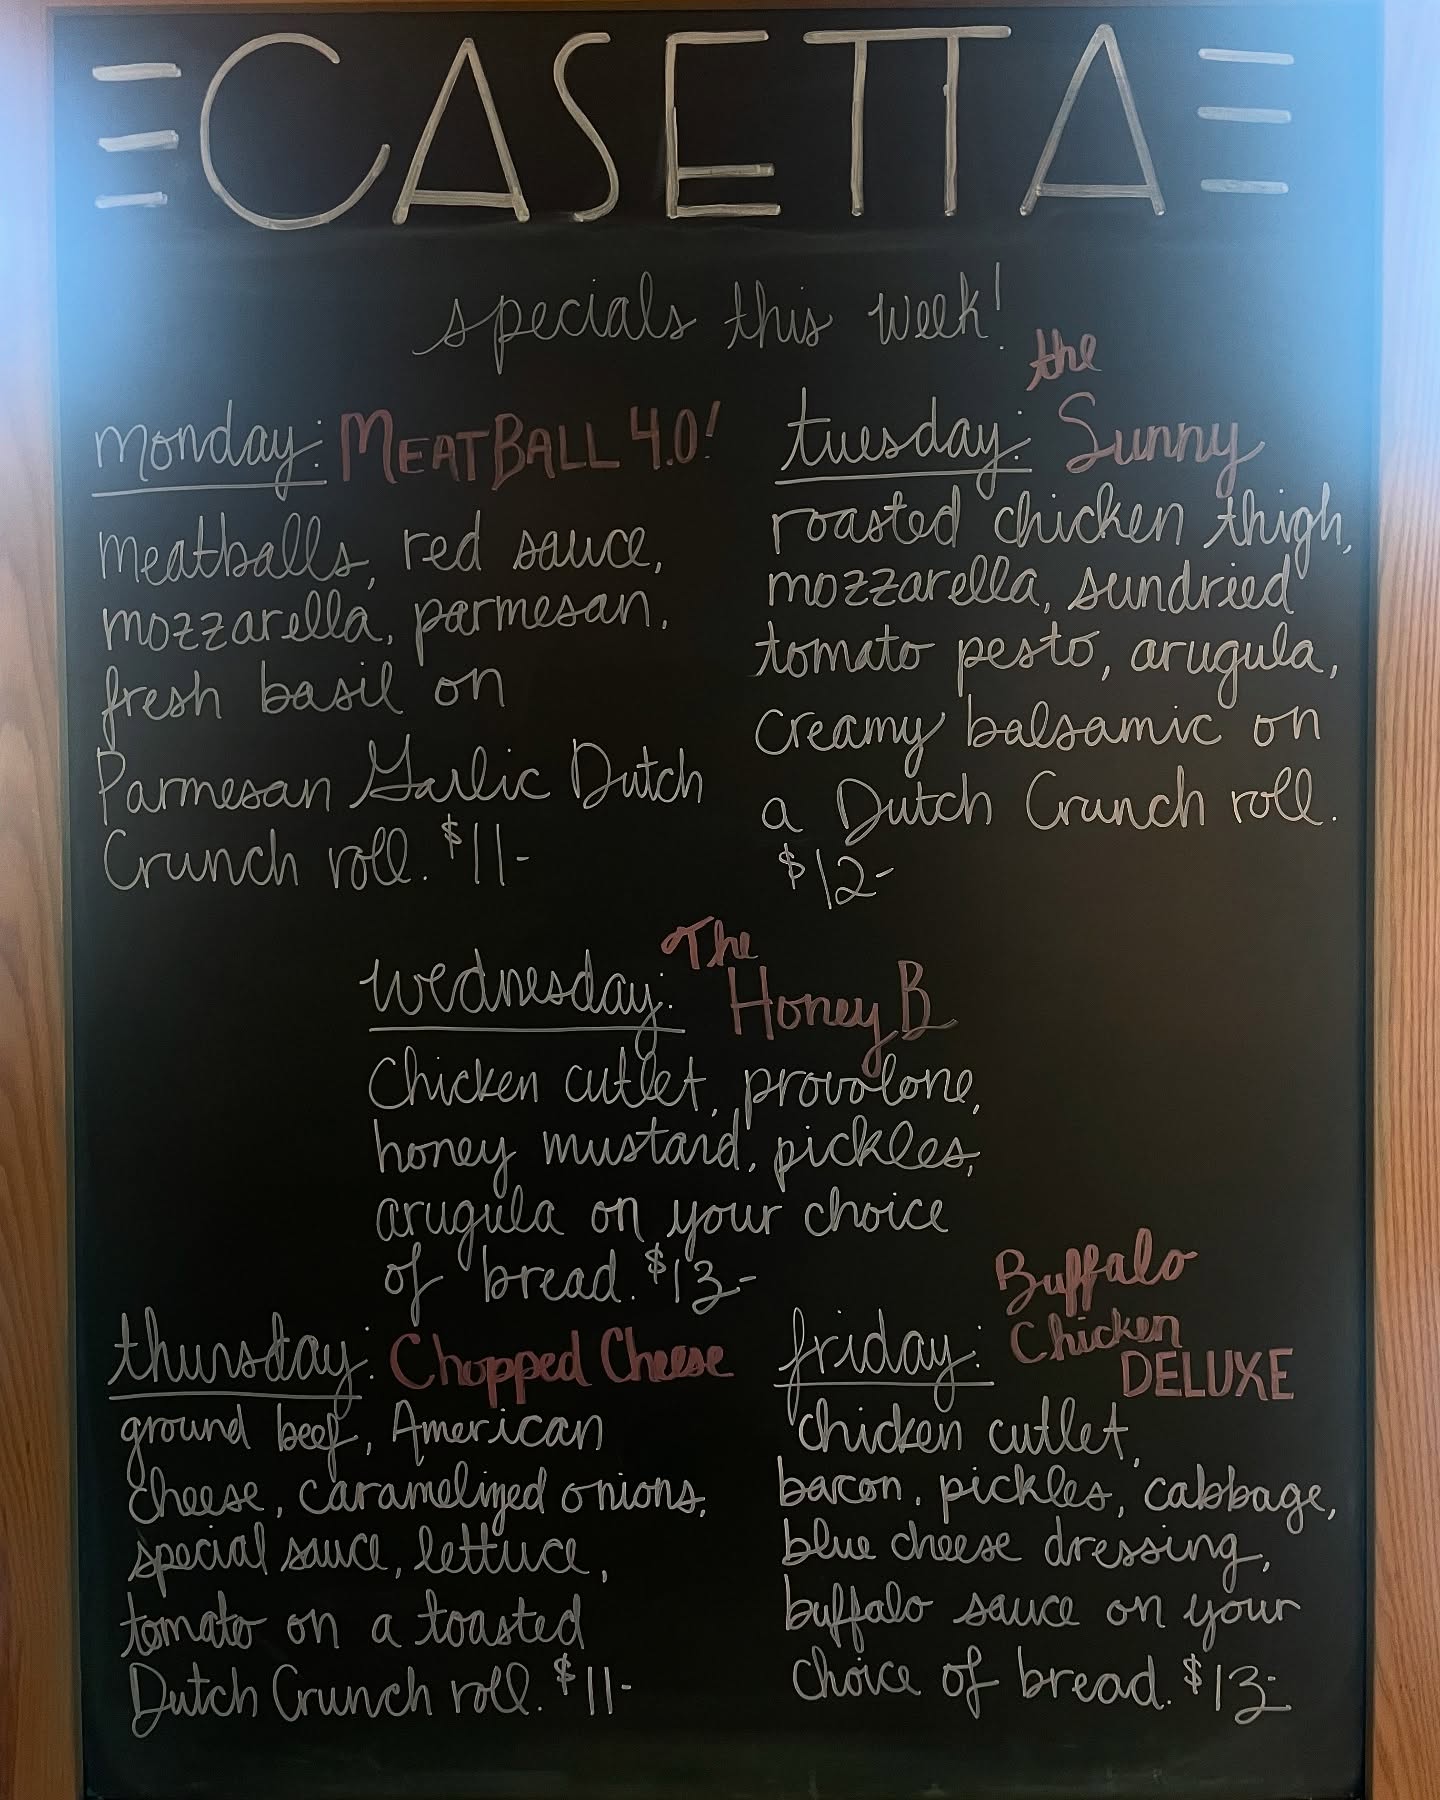 CASETTA
specials this week!
monday: MEATBALL 4.0!
meatballs, red sauce,
mozzarella, parmesan,
fresh basil on
Parmesan Garlic Dutch
Crunch roll. $11-
tuesday: the Sunny
roasted chicken thigh,
mozzarella, sundried
tomato pesto, arugula,
creamy balsamic on
a Dutch Crunch roll.
$12-
wednesday: The Honey B
Chicken cutlet, provolone,
honey mustard, pickles,
arugula on your choice
of bread. $13-
thursday: Chopped Cheese
ground beef, American
cheese, caramelized onions,
special sauce, lettuce,
tomato on a toasted
Dutch Crunch roll. $11-
friday: Buffalo
Chicken
DELUXE
chicken cutlet,
bacon, pickles, cabbage,
blue cheese dressing,
buffalo sauce on your
choice of bread. $13-